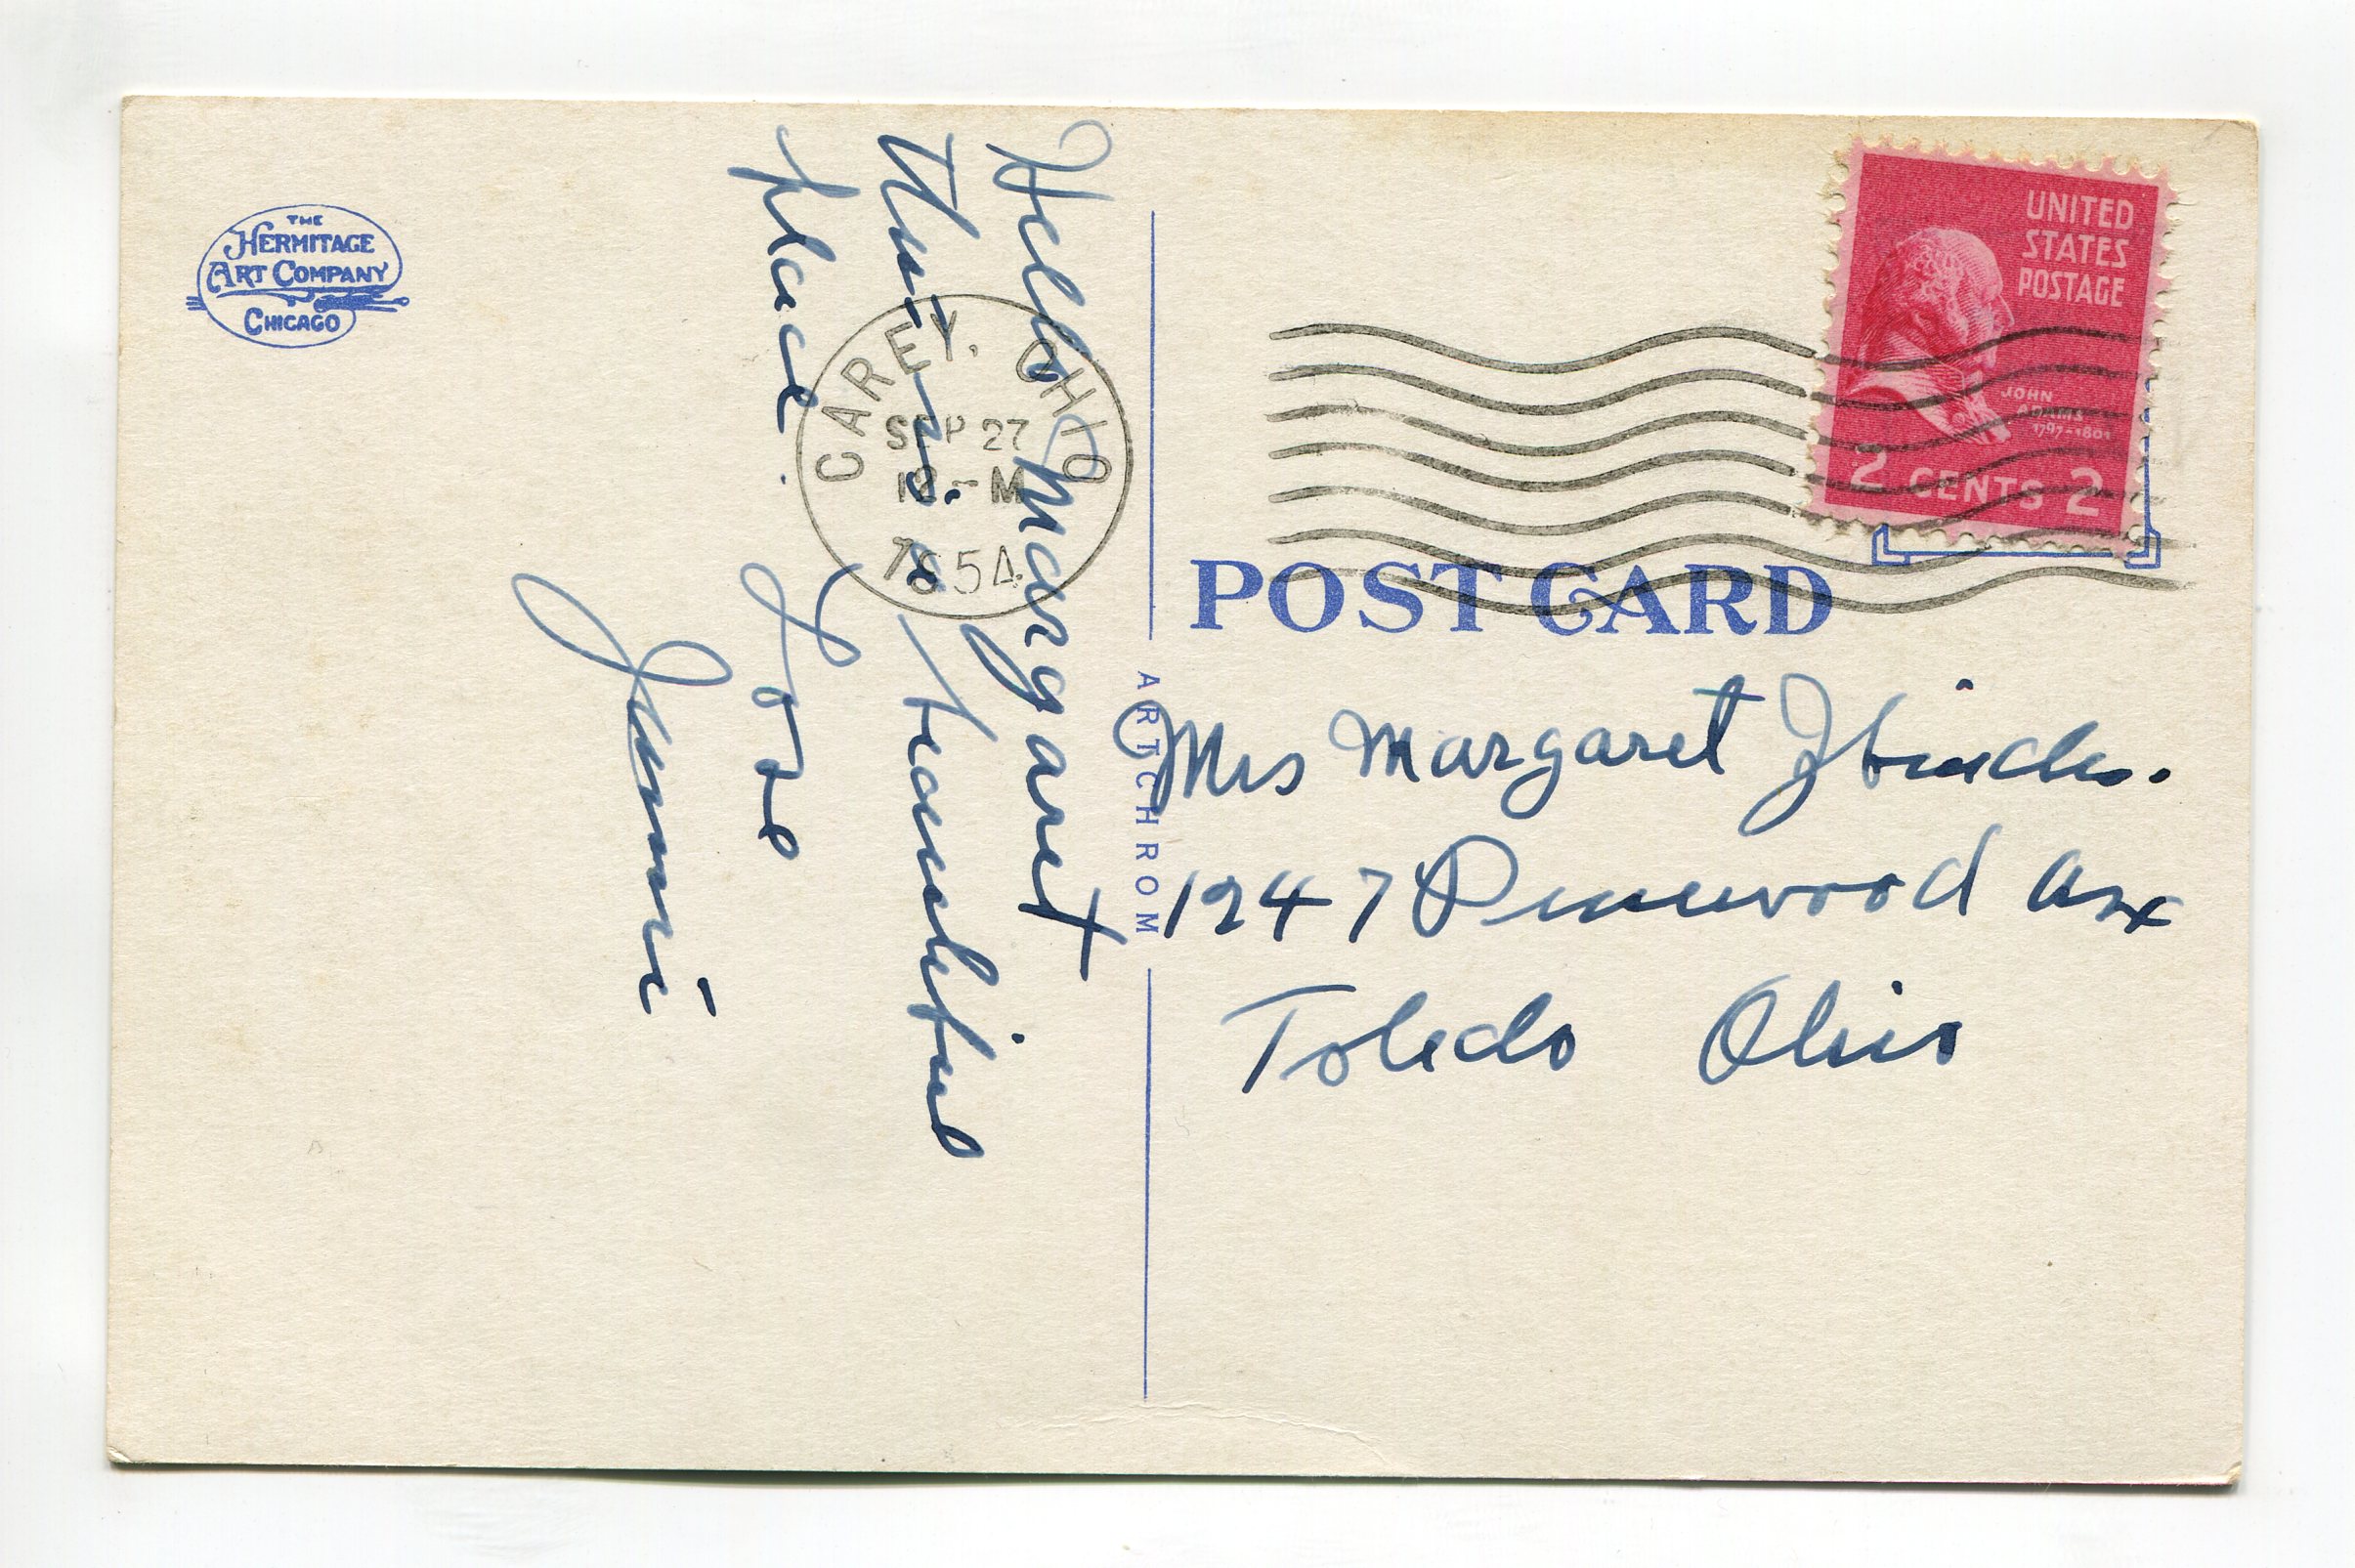 THE
HERMITAGE
ART COMPANY
CHICAGO
Hello Margaret
This is a beautiful
place.
Love
CAREY, OHIO
SEP 27
1954
ARTCHROM
UNITED
STATES
POSTAGE
JOHN
ADAMS
1797-1801
2 CENTS 2
POST CARD
Mrs Margaret
1247 Pinewood Ave
Toledo Ohio